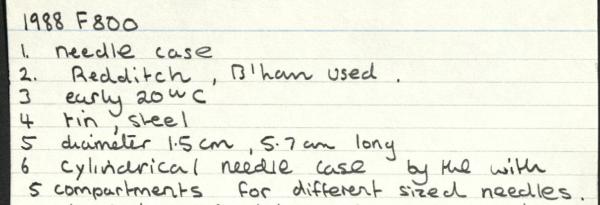 1988 F800
1. needle case
2. Redditch, B'ham used.
3 early 20th C
4 tin, steel
5 diameter 1.5 cm, 5.7 cm long
6 cylindrical needle case by the with
5 compartments for different sized needles.